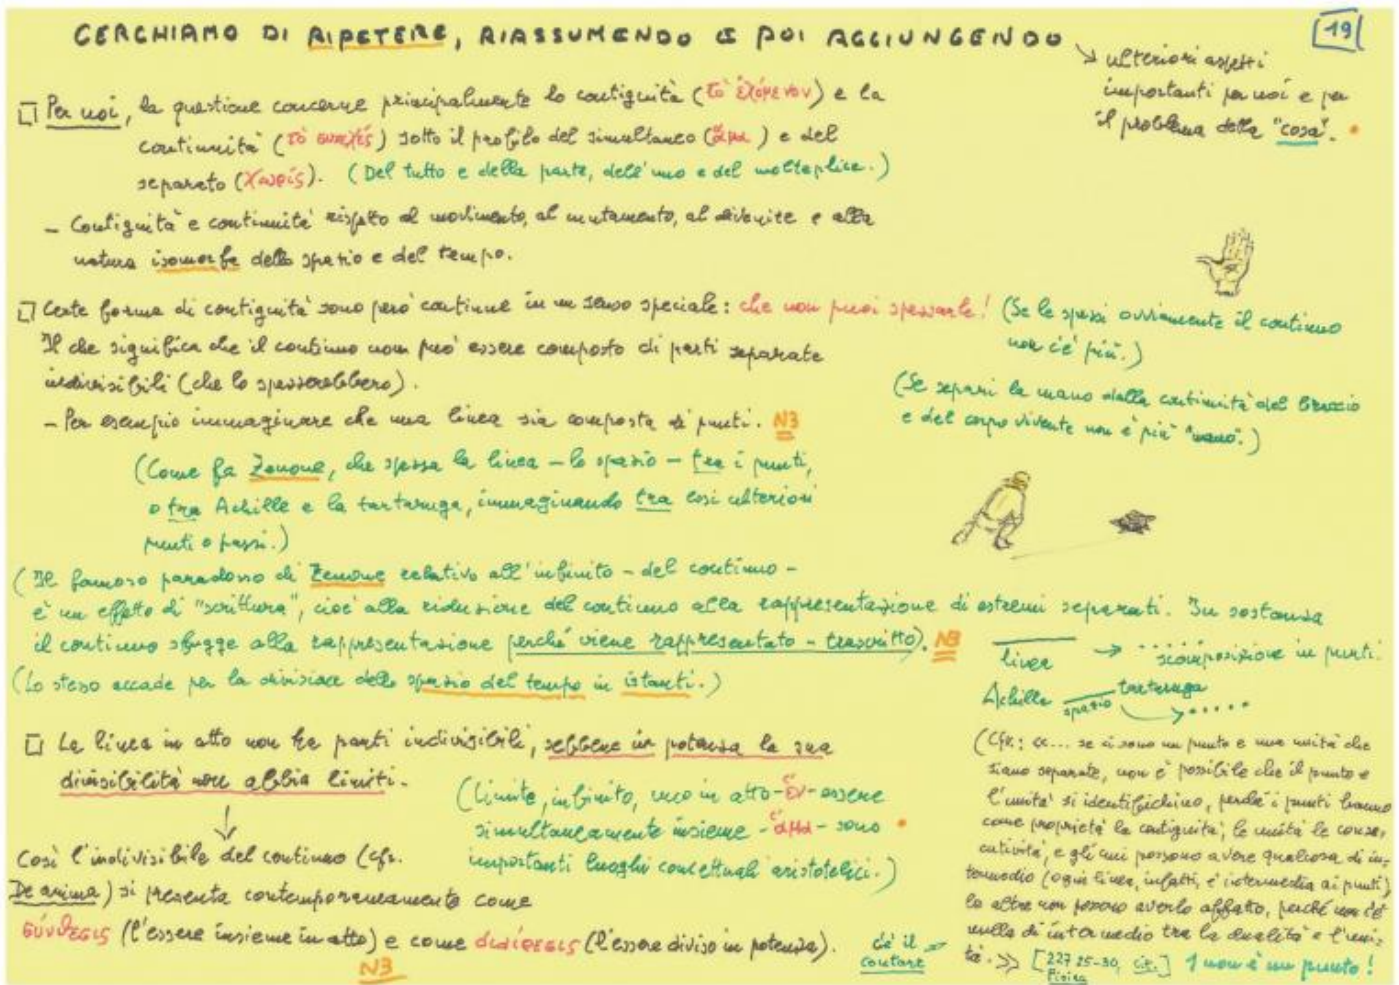 CERCHIAMO DI RIPETERE, RIASSUMENDO E POI AGGIUNGENDO
19
ulteriori aspetti
importanti per noi e per
il problema della "cosa".
Per noi, la questione concerne principalmente la contiguità (τὸ ἐχόμενον) e la
continuità (τὸ συνεχές) sotto il profilo del simultaneo (ἅμα) e del
separato (χωρίς). (Del tutto e della parte, dell'uno e del molteplice.)
- Contiguità e continuità rispetto al movimento, al mutamento, al divenire e alla
natura isomorfa dello spazio e del tempo.
Certe forme di contiguità sono però continue in un senso speciale: che non puoi spezzarle! (Se le spezzi ovviamente il continuo
non c'è più.)
Il che significa che il continuo non può essere composto di parti separate
indivisibili (che lo spezzerebbero).
(Se separi la mano dalla continuità del braccio
e del corpo vivente non è più "mano".)
- Per esempio immaginare che una linea sia composta di punti. NB
(Come fa Zenone, che spezza la linea - lo spazio - tra i punti,
o tra Achille e la tartaruga, immaginando tra essi ulteriori
punti o passi.)
(Il famoso paradosso di Zenone relativo all'infinito - del continuo -
è un effetto di "scrittura", cioè alla riduzione del continuo alla rappresentazione di estremi separati. In sostanza
il continuo sfugge alla rappresentazione perché viene rappresentato - trascritto). NB
(Lo stesso accade per la divisione dello spazio del tempo in istanti.)
linea → ..... scomposizione in punti.
Achille spazio tartaruga
La linea in atto non ha parti indivisibili, sebbene in potenza la sua
divisibilità non abbia limiti.
(Limite, infinito, uno in atto - ἕν - essere
simultaneamente insieme - ἅμα - sono
importanti luoghi concettuali aristotelici.)
Così l'indivisibile del continuo (cfr.
De anima) si presenta contemporaneamente come
σύνθεσις (l'essere insieme in atto) e come διαίρεσις (l'essere diviso in potenza).
NB
(Cfr.: «... se ci sono un punto e una unità che
siano separate, non è possibile che il punto e
l'unità si identifichino, perché i punti hanno
come proprietà la contiguità, le unità la conse-
cutività, e gli uni possono avere qualcosa di in-
termedio (ogni linea, infatti, è intermedia ai punti)
le altre non possono averlo affatto, perché non c'è
nulla di intermedio tra la dualità e l'uni-
tà.» [227 25-30, cit.] 1 non è un punto!
Fisica
c'è il
contare